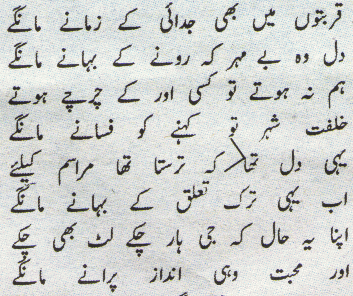 قربتوں میں بھی جدائی کے زمانے مانگے
دل وہ بے مہر کہ رونے کے بہانے مانگے
ہم نہ ہوتے تو کسی اور کے چرچے ہوتے
خلقت شہر تو کہنے کو فسانے مانگے
یہی دل تھا کہ ترستا تھا مراسم کیلئے
اب یہی ترک تعلق کے بہانے مانگے
اپنا یہ حال کہ جی ہار چکے لٹ بھی چکے
اور محبت وہی انداز پرانے مانگے